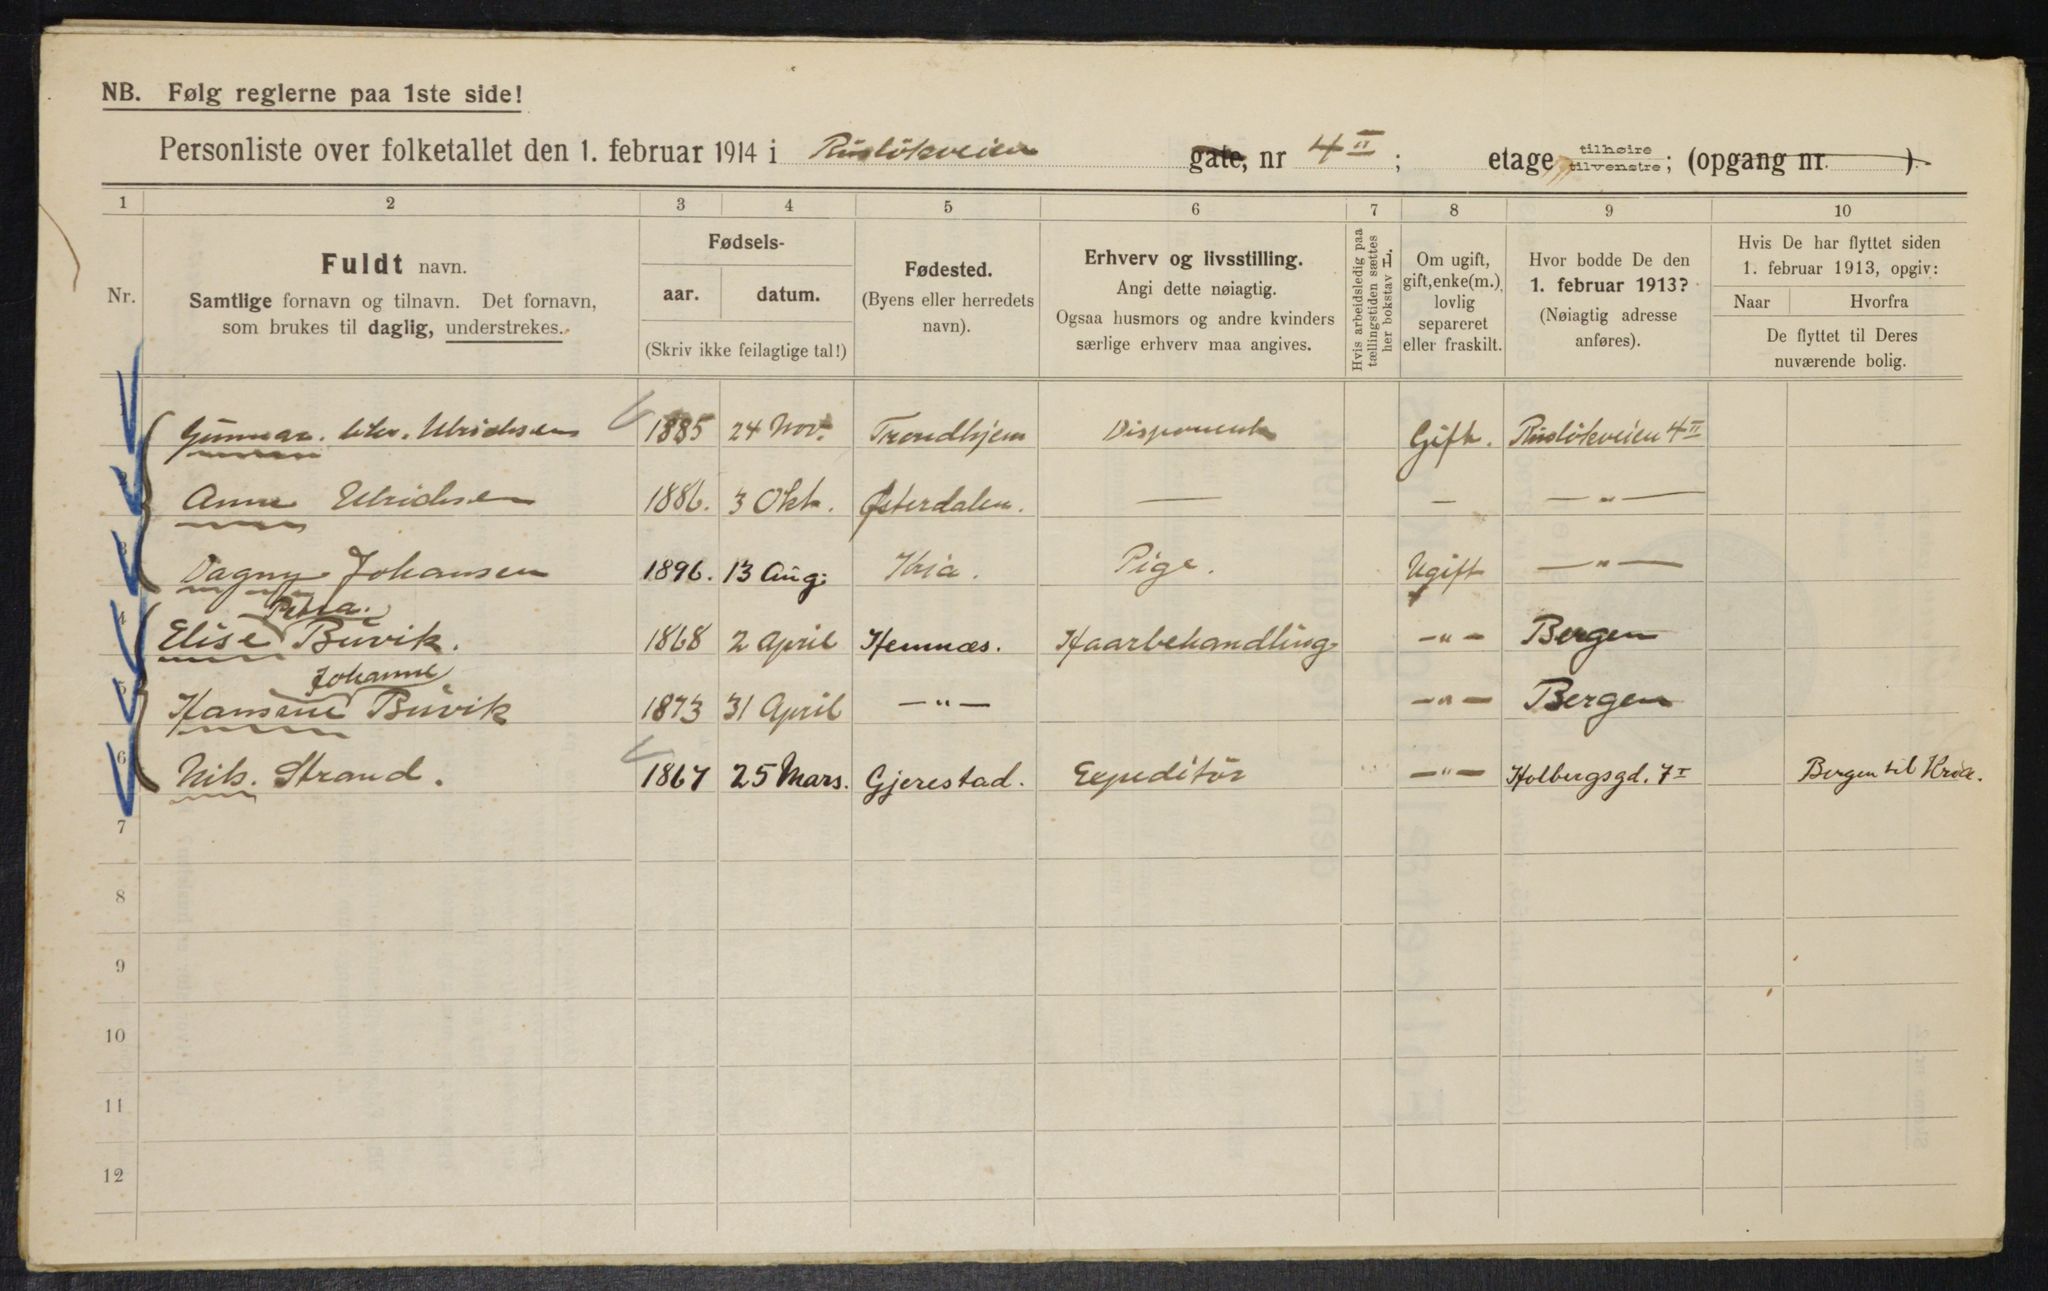 NB. Følg reglerne paa 1ste side!
Personliste over folketallet den 1. februar 1914 i Rusløkveien gate, nr 4 II ; etage tilhøire tilvenstre; (opgang nr. ).
1 2 3 4 5 6 7 8 9 10
Nr.
Fuldt navn.
Samtlige fornavn og tilnavn. Det fornavn,
som brukes til daglig, understrekes.
Fødsels-
aar. datum.
(Skriv ikke feilagtige tal!)
Fødested.
(Byens eller herredets
navn).
Erhverv og livsstilling.
Angi dette nøiagtig.
Ogsaa husmors og andre kvinders
særlige erhverv maa angives.
Hvis arbeidsledig paa
tællingstiden sættes
her bokstav L.
Om ugift,
gift, enke(m.),
lovlig
separeret
eller fraskilt.
Hvor bodde De den
1. februar 1913?
(Nøiagtig adresse
anføres).
Hvis De har flyttet siden
1. februar 1913, opgiv:
Naar Hvorfra
De flyttet til Deres
nuværende bolig.
Gunnar. Chr. Ulrichsen 1885 24 Nov. Trondhjem Disponent Gift. Rusløkveien 4 II
2 Anne Ulrichsen 1886. 3 Okt. Østerdalen. — — — " —
3 Dagny Johansen 1896. 13 Aug: Kria. Pige. Ugift — " —
4 Elise Petra. Buvik. 1868 2 April Hemnæs. Haarbehandling — " — Bergen
5 Hansine Johanne Buvik 1873 31 April — " — — " — Bergen
6 Nils. Strand. 1867 25 Mars. Gjerestad. Expeditør — " — Holbergsgd. 7 I Bergen til Kria.
7
8
9
10
11
12